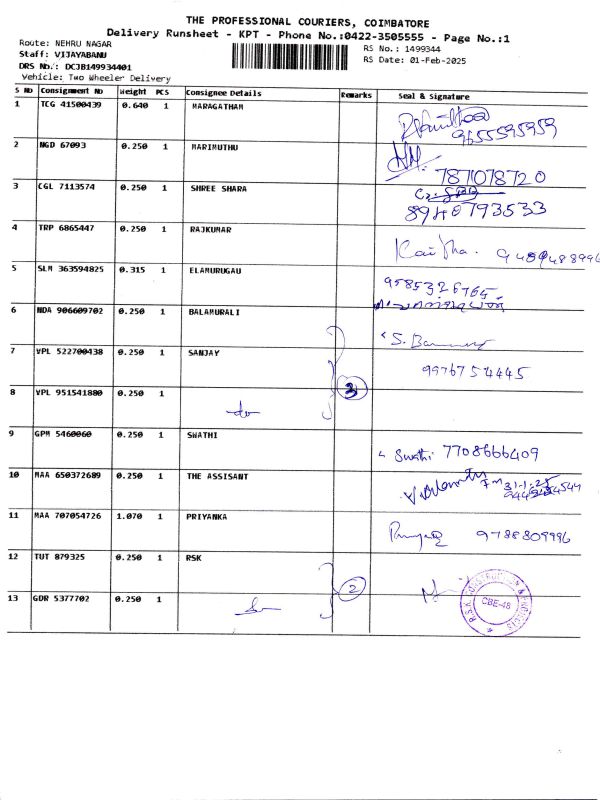 THE PROFESSIONAL COURIERS, COIMBATORE
Delivery Runsheet - KPT - Phone No.:0422-3505555 - Page No.:1
Route: NEHRU NAGAR
Staff: VIJAYABANU
DRS No.: DCJB149934401
Vehicle: Two Wheeler Delivery
RS No.: 1499344
RS Date: 01-Feb-2025
S No Consignment No Weight PCS Consignee Details Remarks Seal & Signature
1 TCG 41500439 0.640 1 MARAGATHAM
9655595959
2 NGD 67093 0.250 1 MARIMUTHU
7871078720
3 CGL 7113574 0.250 1 SHREE SHARA
8940793533
4 TRP 6865447 0.250 1 RAJKUMAR
5 SLM 363594825 0.315 1 ELAMURUGAU
9585326765
6 NDA 906609702 0.250 1 BALAMURALI
7 VPL 522700438 0.250 1 SANJAY
9976754445
8 VPL 951541880 0.250 1
3
9 GPM 5460060 0.250 1 SWATHI
Swathi 7708666409
10 MAA 650372689 0.250 1 THE ASSISANT
31-1-25
11 MAA 707054726 1.070 1 PRIYANKA
9788809996
12 TUT 879325 0.250 1 RSK
2
R.S.K CONSTRUCTION & PROJECTS
CBE-48
13 GDR 5377702 0.250 1